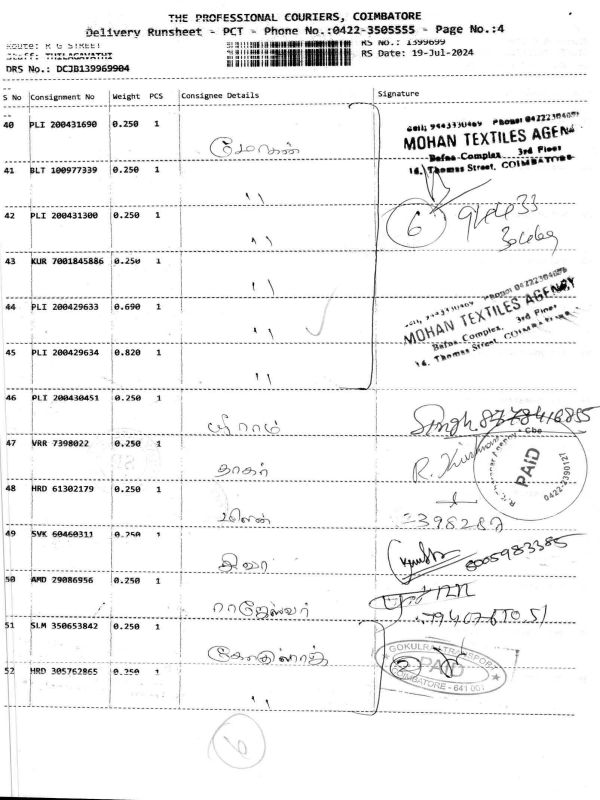 THE PROFESSIONAL COURIERS, COIMBATORE
Delivery Runsheet - PCT - Phone No.:0422-3505555 - Page No.:4
Route: R G STREET RS No.: 1399699
Staff: THILAGAVATHI RS Date: 19-Jul-2024
DRS No.: DCJB139969904
S No Consignment No Weight PCS Consignee Details Signature
40 PLI 200431690 0.250 1 மோகன்
MOHAN TEXTILES AGENCY
Bafna Complex, 3rd Floor
14, Thomas Street, COIMBATORE
41 BLT 100977339 0.250 1 ''
42 PLI 200431300 0.250 1 ''
6
43 KUR 7001845886 0.250 1 ''
44 PLI 200429633 0.690 1 ''
MOHAN TEXTILES AGENCY
Bafna Complex, 3rd Floor
14, Thomas Street, COIMBATORE
45 PLI 200429634 0.820 1 ''
46 PLI 200430451 0.250 1 ஸ்ரீ ராம் Singh
47 VRR 7398022 0.250 1 தாகர் R.
PAID
0422-2390127
48 HRD 61302179 0.250 1
49 SVK 60460311 0.250 1 8005983385
50 AMD 29086956 0.250 1 ராஜேஸ்வர்
51 SLM 350653842 0.250 1
GOKULRAJ TRANSPORT
PAID
COIMBATORE - 641 001
2
52 HRD 305762865 0.250 1 ''
6